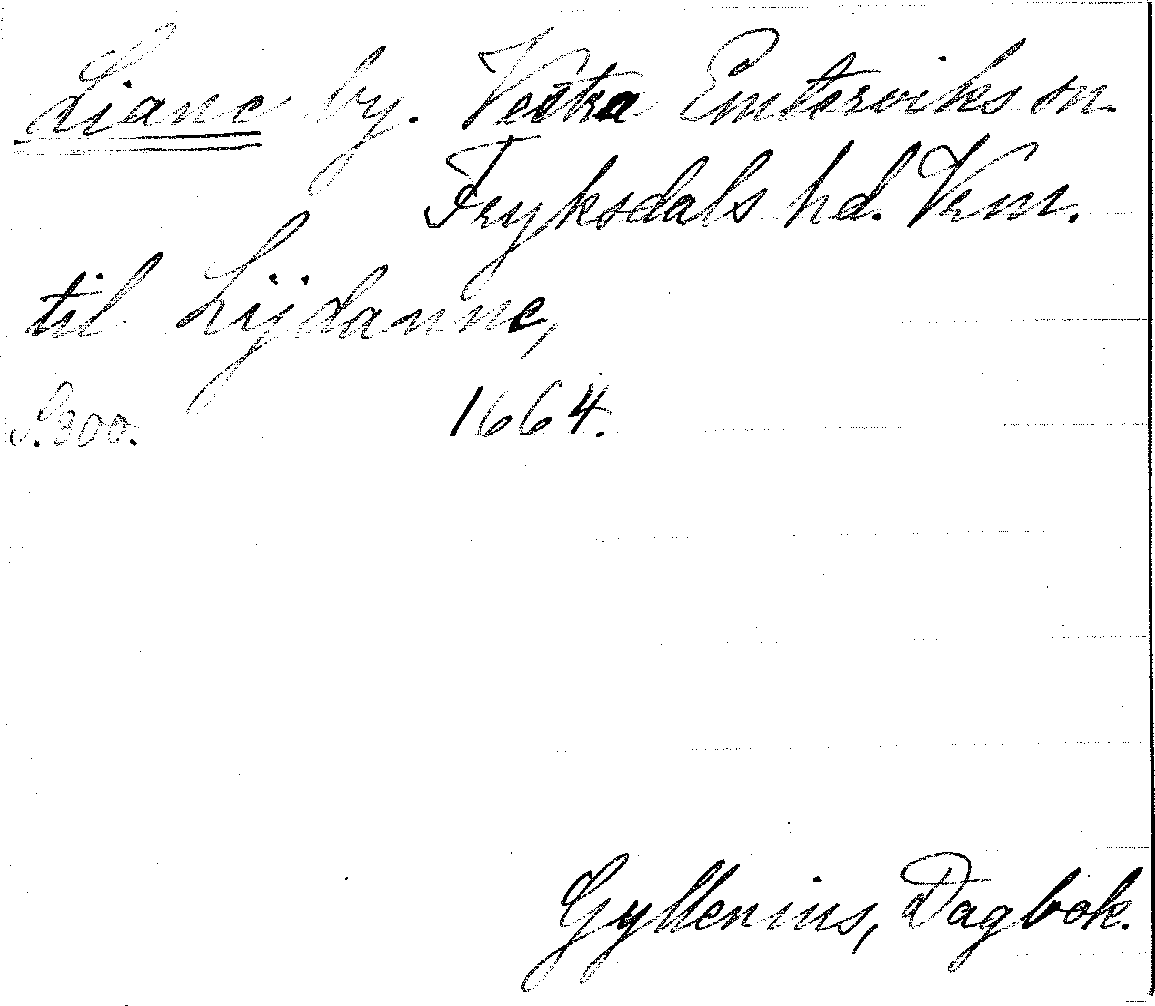 Liane by. Vestra Emterviks sn.
Fryksdals hd. Vrm.
til Lijdanne,
S. 300. 1664.
Gyllenius, Dagbok.